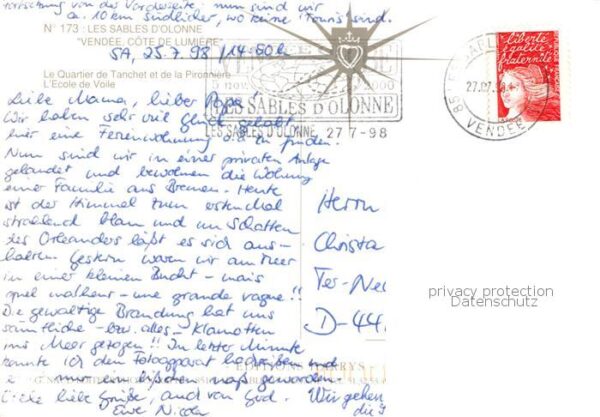 Fortsetzung von der Vorderseite: nun sind wir
ca. 10 km südlicher, wo keine "Touris" sind.
N° 173 : LES SABLES D'OLONNE
"VENDÉE, CÔTE DE LUMIÈRE"
SA, 25.7.98 / 14.50 h
Le Quartier de Tanchet et de la Pironnière
L'Ecole de Voile
nov. 2000
LES SABLES D'OLONNE
LES SABLES D'OLONNE 27 7-98
liberté
égalité
fraternité
27.07.98
85 VENDEE
Liebe Mama, lieber Papa!
Wir haben sehr viel Glück gehabt,
hier eine Ferienwohnung zu finden.
Nun sind wir in einer privaten Anlage
gelandet und bewohnen die Wohnung
einer Familie aus Bremen. Heute
ist der Himmel zum ersten Mal
strahlend blau und im Schatten
des Oleanders läßt es sich aus-
halten. Gestern waren wir am Meer
in einer kleinen Bucht - mais
quel malheur - une grande vague!!
Die gewaltige Brandung hat uns
sämtliche - bzw. alles - Klamotten
ins Meer gezogen!! In letzter Minute
konnte ich den Fotoapparat hochreißen und
er ist nur ein bißchen naß geworden
liebe Grüße, auch von
Eure Nicola
Wir gehen
die
Herrn
Christa
Ter-Ne
D-44
privacy protection
Datenschutz
EDITIONS